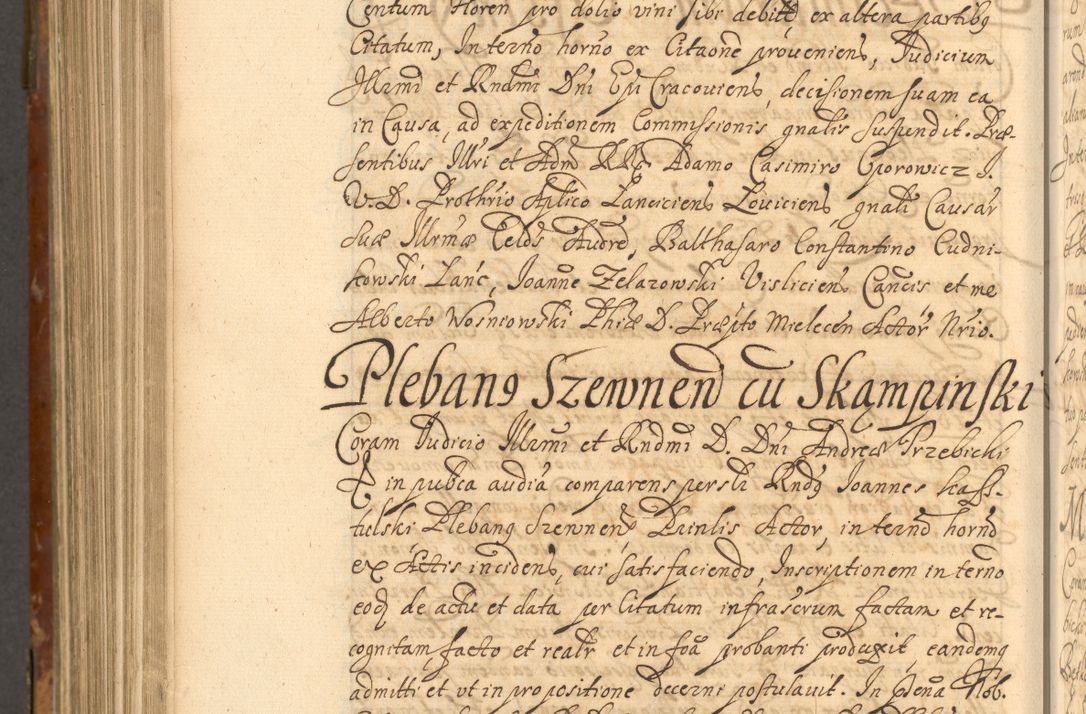 Centum floren pro dolio vini sibi debitt ex altera partibꝫ
Citatum, In terno horno ex Citaone proveniens, Iudicium
Illrmi et Rndmi Dni Epi Cracoviens, decisionem suam ea
in Causa, ad expeditionem Commissionis gnalis suspendit. Præ-
sentibus Illri et Adm RR Adamo Casimiro Oporowicz I.
V. D. Prothrio Aplico Lanciciens Loviciens gnali Causar
suæ Illrmæ Celds Audre, Balthasaro Constantino Cudni-
kowski Lanc, Joanne Zelazowski Visliciens Cancis et me
Alberto Wosniowski Phiæ D. Præpto Mielecen Actor Nrio.
Plebanꝰ Szewnen cu Skampinski
Coram Iudicio Illrmi et Rndmi D. Dni Andreæ Trzebicki
E in publca audia comparens persli Rndꝰ Joannes Kass-
tulski Plebanꝰ Szewnens Prinlis Actor, in terno horno
ex Actis incidens, cui satisfaciendo, Inscriptionem in terno
eodꝫ de actu et data per Citatum infrascrum factam et re-
cognitam facto et realr et in foa probanti produxit, eandemqꝫ
admitti et ut in propositione decerni postulavit. In pŝena Nob.